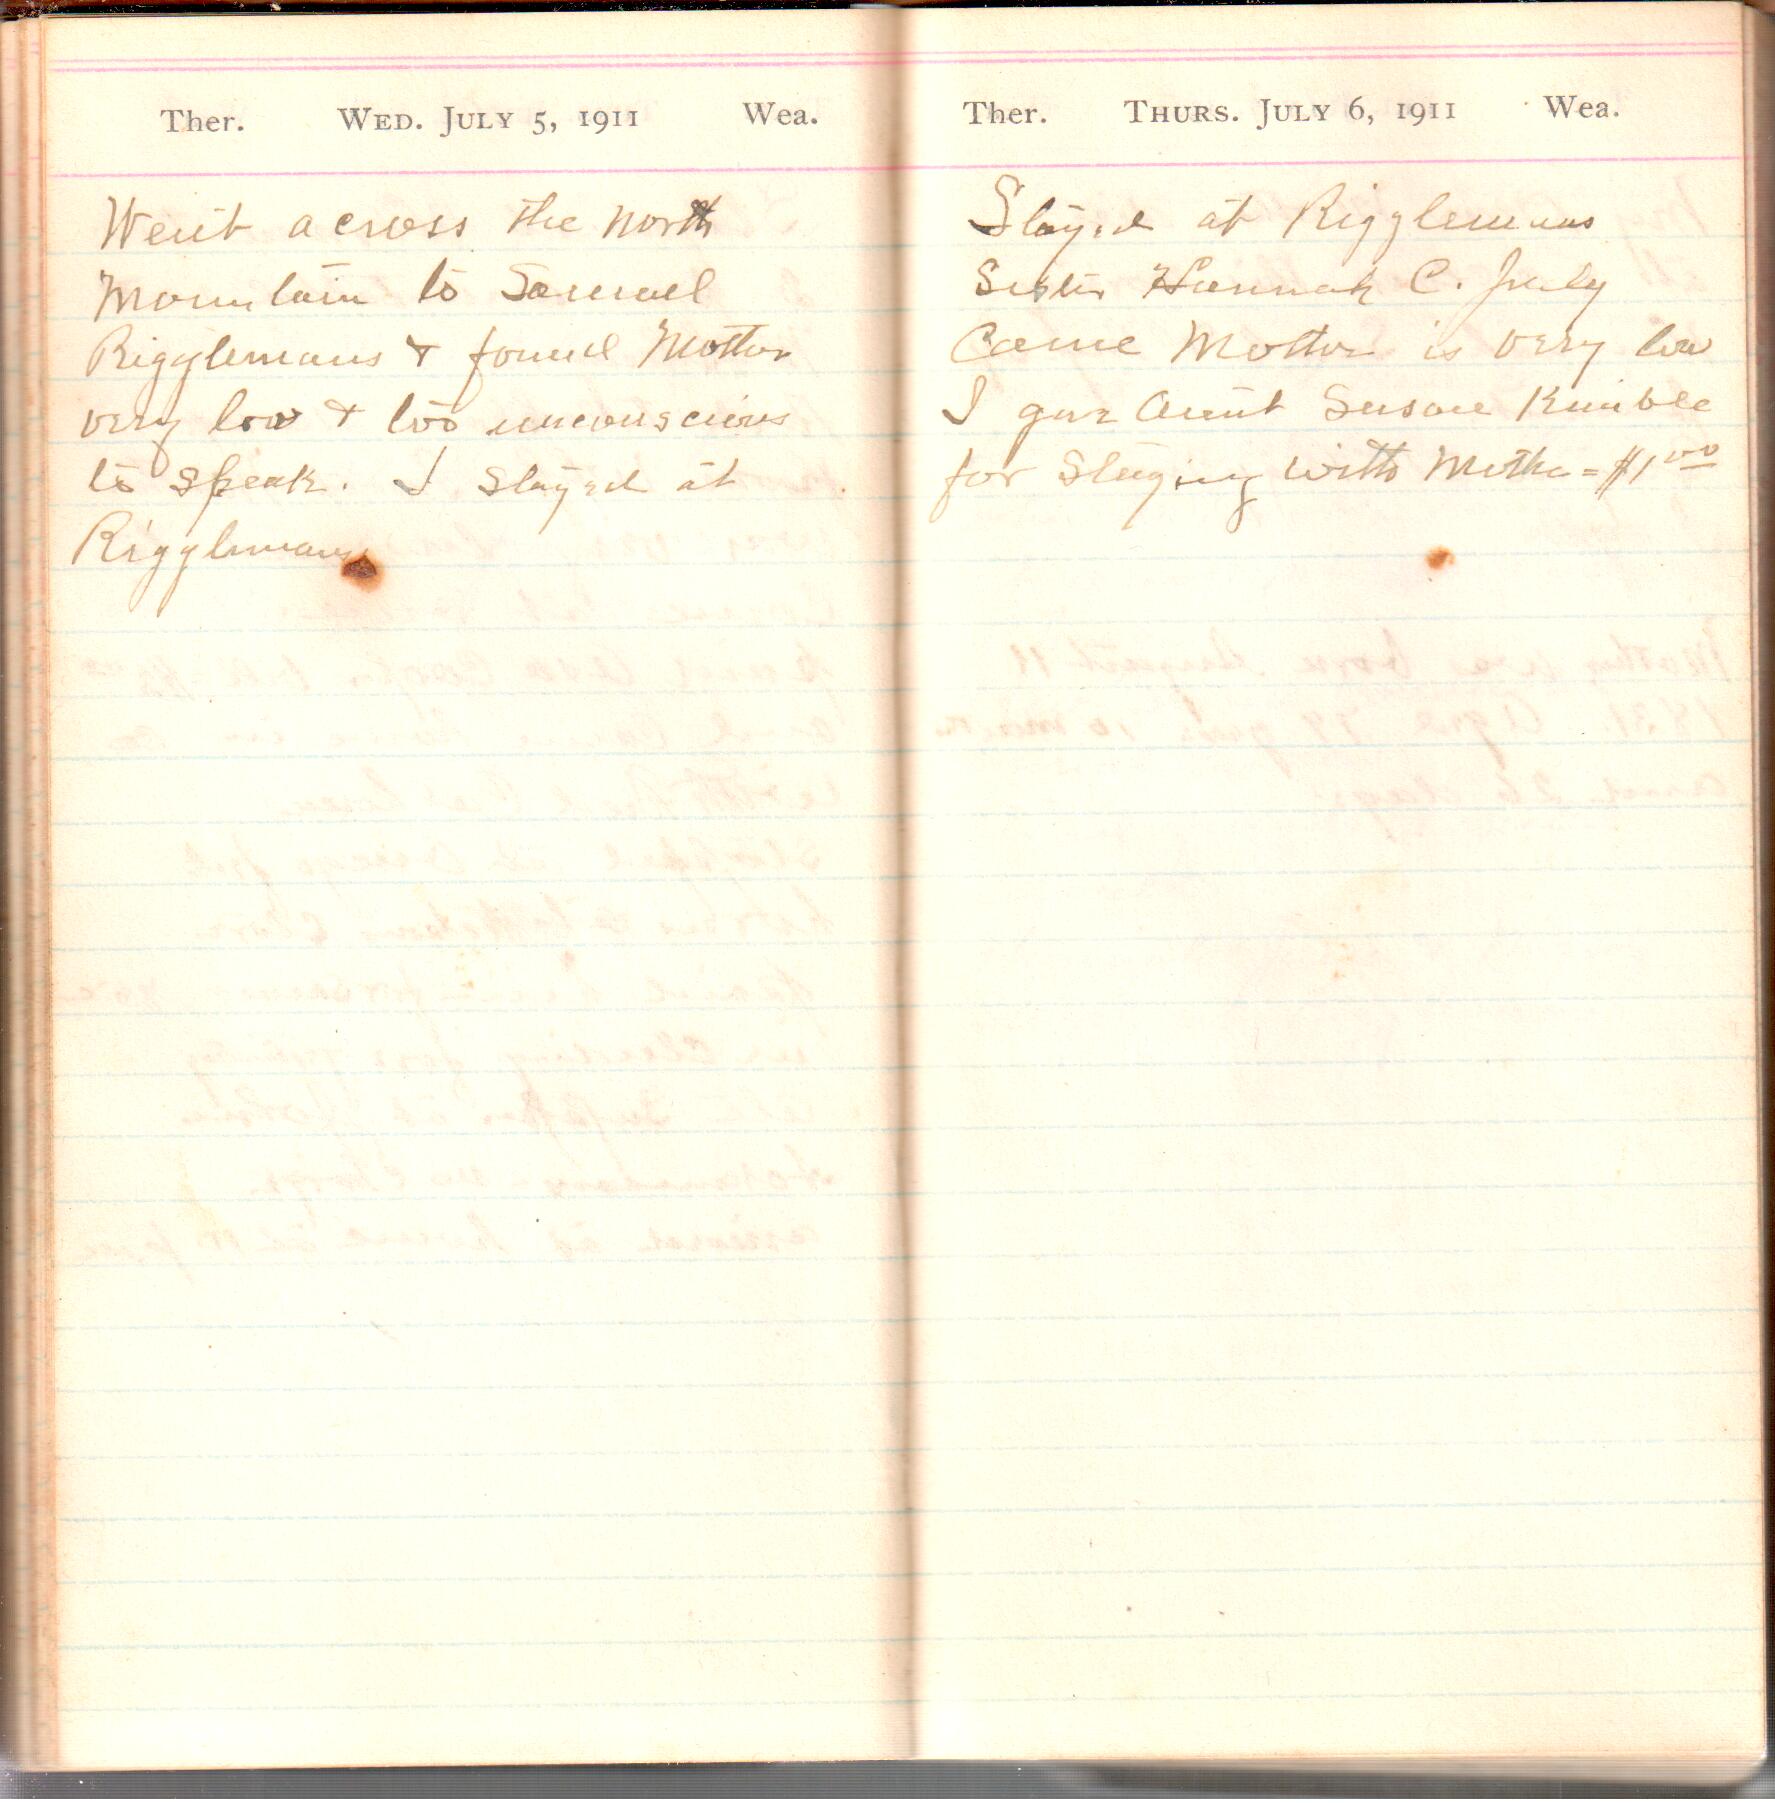 Ther. Wed. July 5, 1911 Wea.
Went across the North
Mountain to Samuel
Rigglemans & found Mother
very low & too unconscious
to speak. I stayed at
Rigglemans
Ther. Thurs. July 6, 1911 Wea.
Stayed at Rigglemans
Sister Hannah C. Judy
Came Mother is very low
I gave Aunt Susan Kimble
for Staying with Mother = $1.00